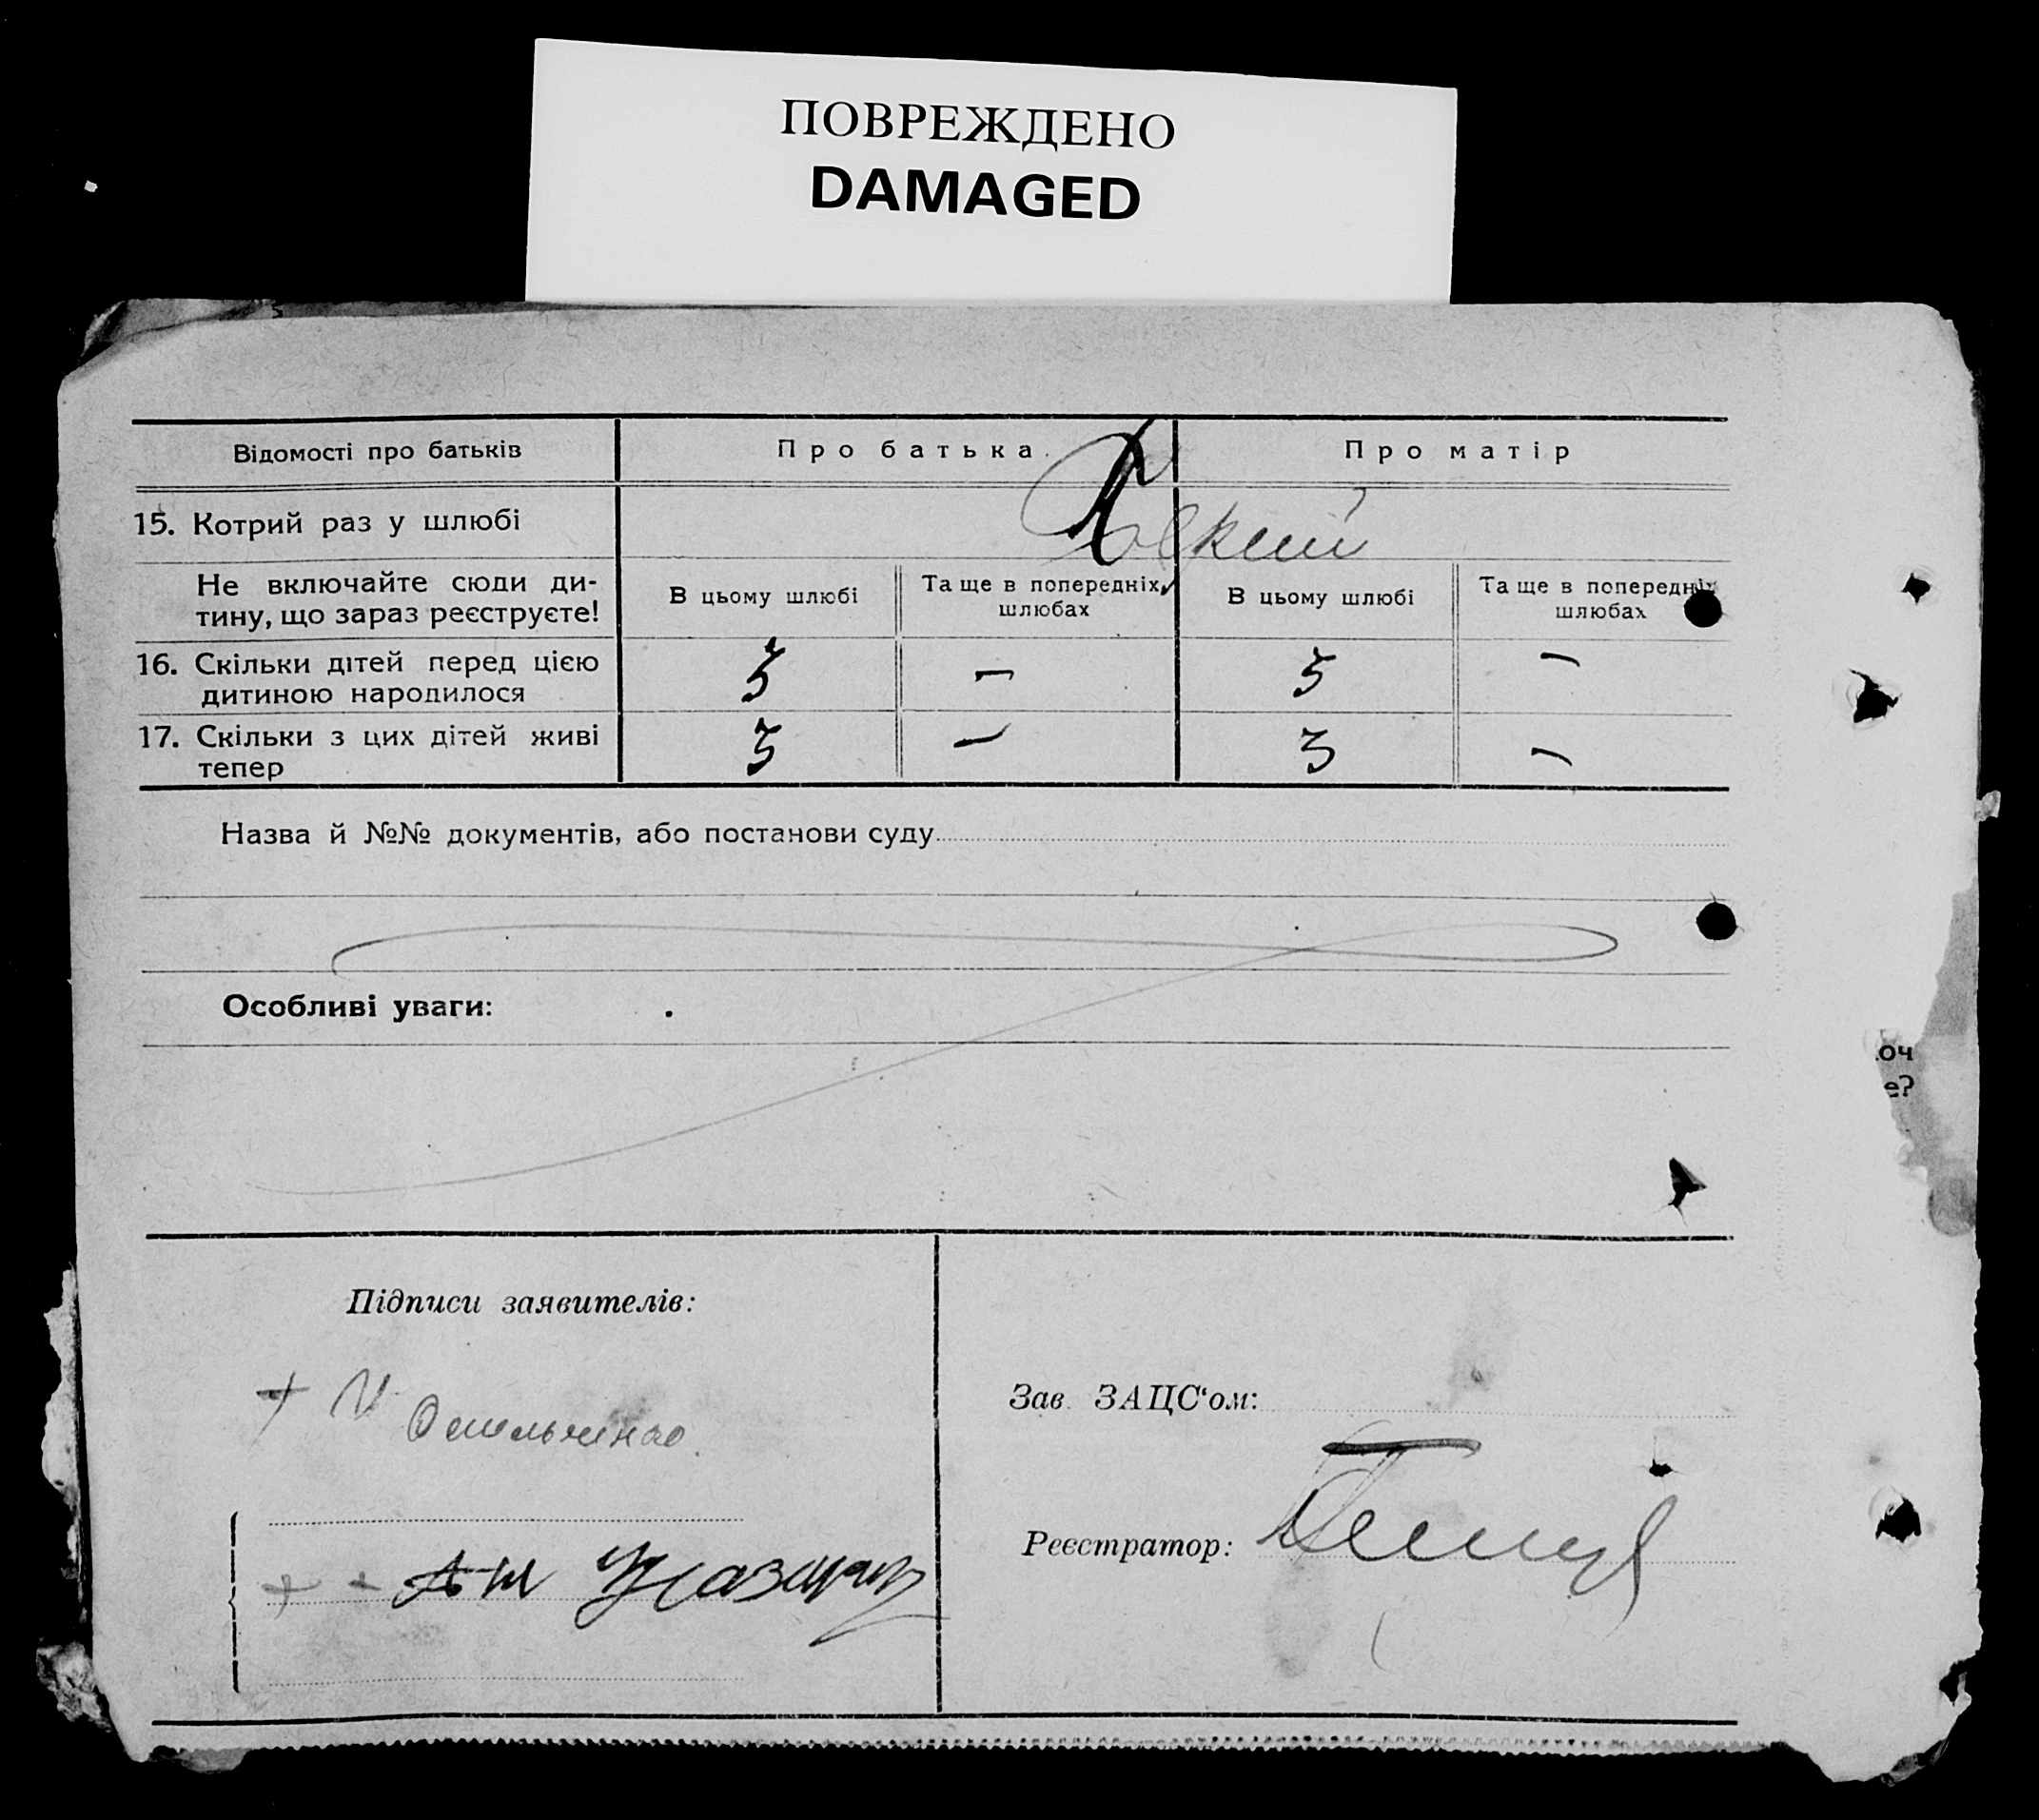 ПОВРЕЖДЕНО
DAMAGED
Відомості про батьків
Про батька
Про матір
15. Котрий раз у шлюбі
Не включайте сюди ди-
тину, що зараз реєструєте!
В цьому шлюбі
Та ще в попередніх
шлюбах
В цьому шлюбі
Та ще в попередніх
шлюбах
16. Скільки дітей перед цією
дитиною народилося
— —
17. Скільки з цих дітей живі
тепер
— 3 —
Назва й №№ документів, або постанови суду
Особливі уваги:
оч
е?
Підписи заявителів:
+
Омельченко
Зав. ЗАЦС‘ом:
Реєстратор: